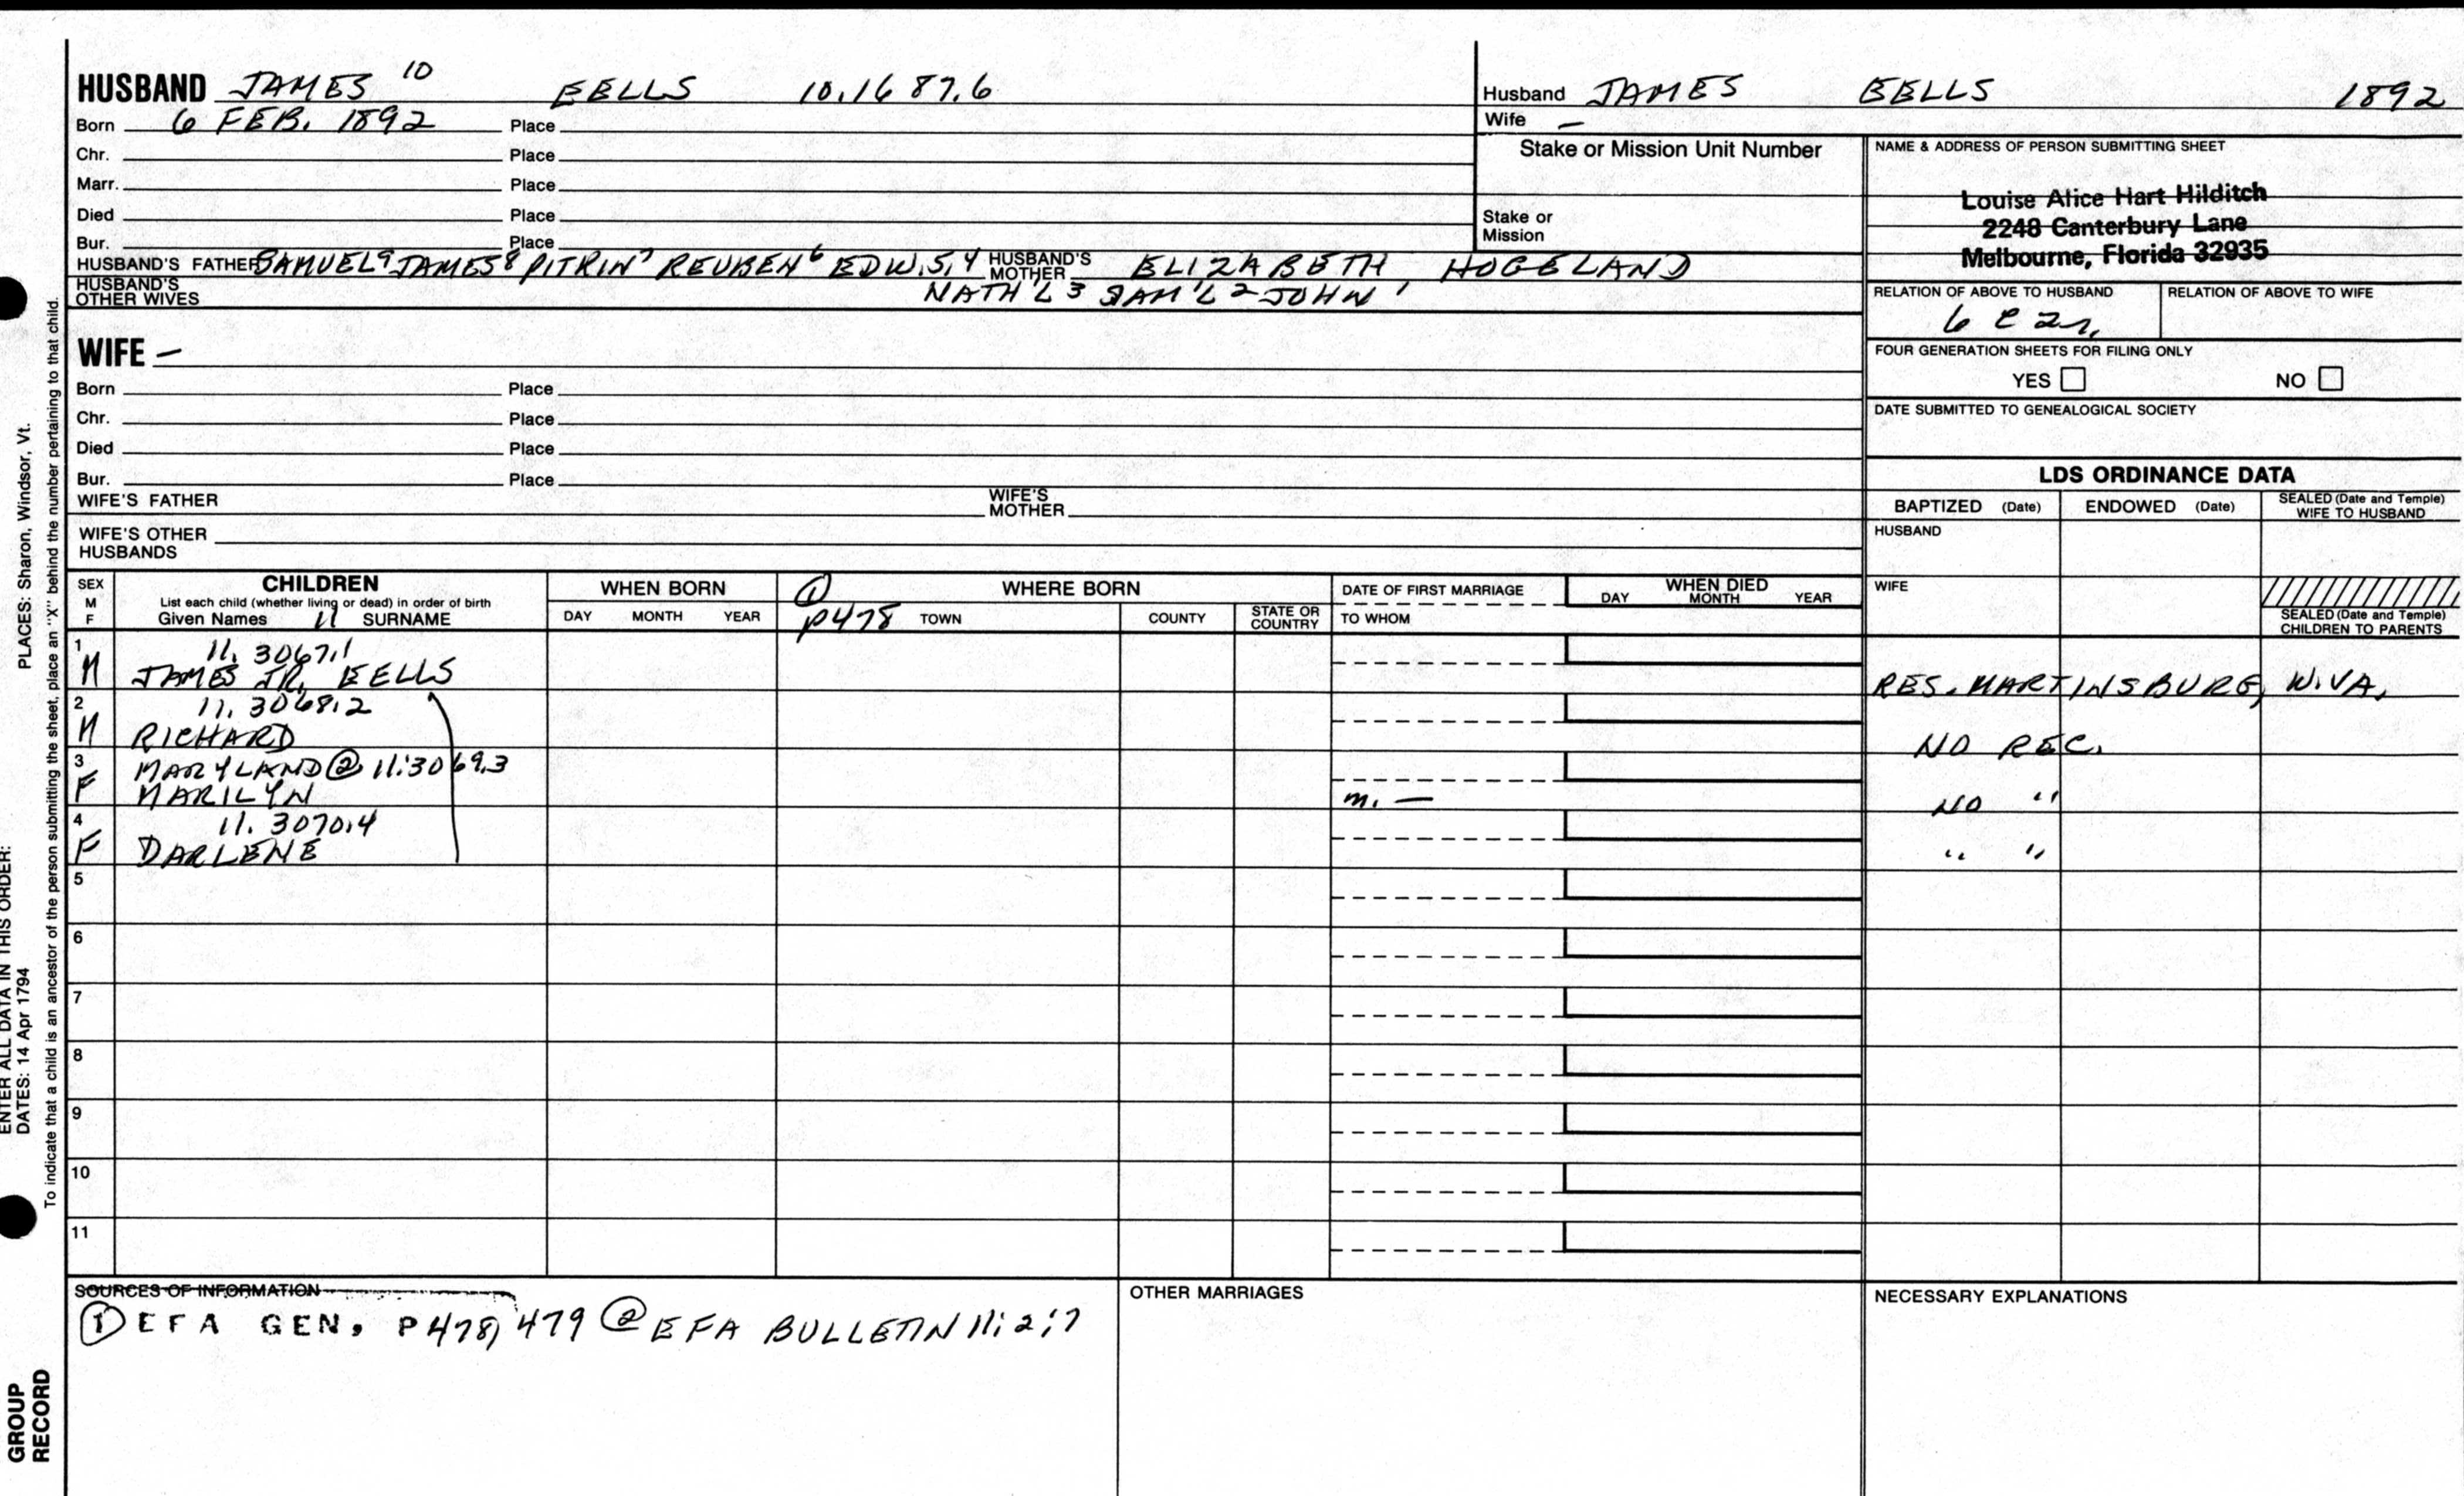 HUSBAND JAMES 10 EELLS 10.1687.6
Born 6 FEB. 1892 Place
Chr. Place
Marr. Place
Died Place
Bur. Place
HUSBAND'S FATHER SAMUEL9 JAMES8 PITKIN7 REUBEN6 EDW.5,4 HUSBAND'S MOTHER ELIZABETH HOGELAND
HUSBAND'S OTHER WIVES NATH'L3 SAM'L2 JOHN1
Husband JAMES EELLS 1892
Wife –
Stake or Mission Unit Number
Stake or Mission
NAME & ADDRESS OF PERSON SUBMITTING SHEET
Louise Alice Hart Hilditch
2248 Canterbury Lane
Melbourne, Florida 32935
RELATION OF ABOVE TO HUSBAND RELATION OF ABOVE TO WIFE
6 C 2r.
FOUR GENERATION SHEETS FOR FILING ONLY
YES NO
DATE SUBMITTED TO GENEALOGICAL SOCIETY
WIFE –
Born Place
Chr. Place
Died Place
Bur. Place
WIFE'S FATHER WIFE'S MOTHER
WIFE'S OTHER HUSBANDS
LDS ORDINANCE DATA
BAPTIZED (Date) ENDOWED (Date) SEALED (Date and Temple) WIFE TO HUSBAND
HUSBAND
WIFE
SEALED (Date and Temple) CHILDREN TO PARENTS
SEX M F
CHILDREN
List each child (whether living or dead) in order of birth
Given Names 11 SURNAME
WHEN BORN
DAY MONTH YEAR
① P478
WHERE BORN
TOWN COUNTY STATE OR COUNTRY
DATE OF FIRST MARRIAGE
TO WHOM
WHEN DIED
DAY MONTH YEAR
1 11.3067.1
M JAMES JR. EELLS RES. MARTINSBURG, W.VA.
2 11.3068.2
M RICHARD NO REC.
3 MARYLAND② 11.3069.3
F MARILYN m. — NO "
4 11.3070.4
F DARLENE " "
5
6
7
8
9
10
11
SOURCES OF INFORMATION
① EFA GEN, P478, 479 ② EFA BULLETIN 11:2:7
OTHER MARRIAGES
NECESSARY EXPLANATIONS
PLACES: Sharon, Windsor, Vt.
ENTER ALL DATA IN THIS ORDER:
DATES: 14 Apr 1794
To indicate that a child is an ancestor of the person submitting the sheet, place an "X" behind the number pertaining to that child.
GROUP
RECORD